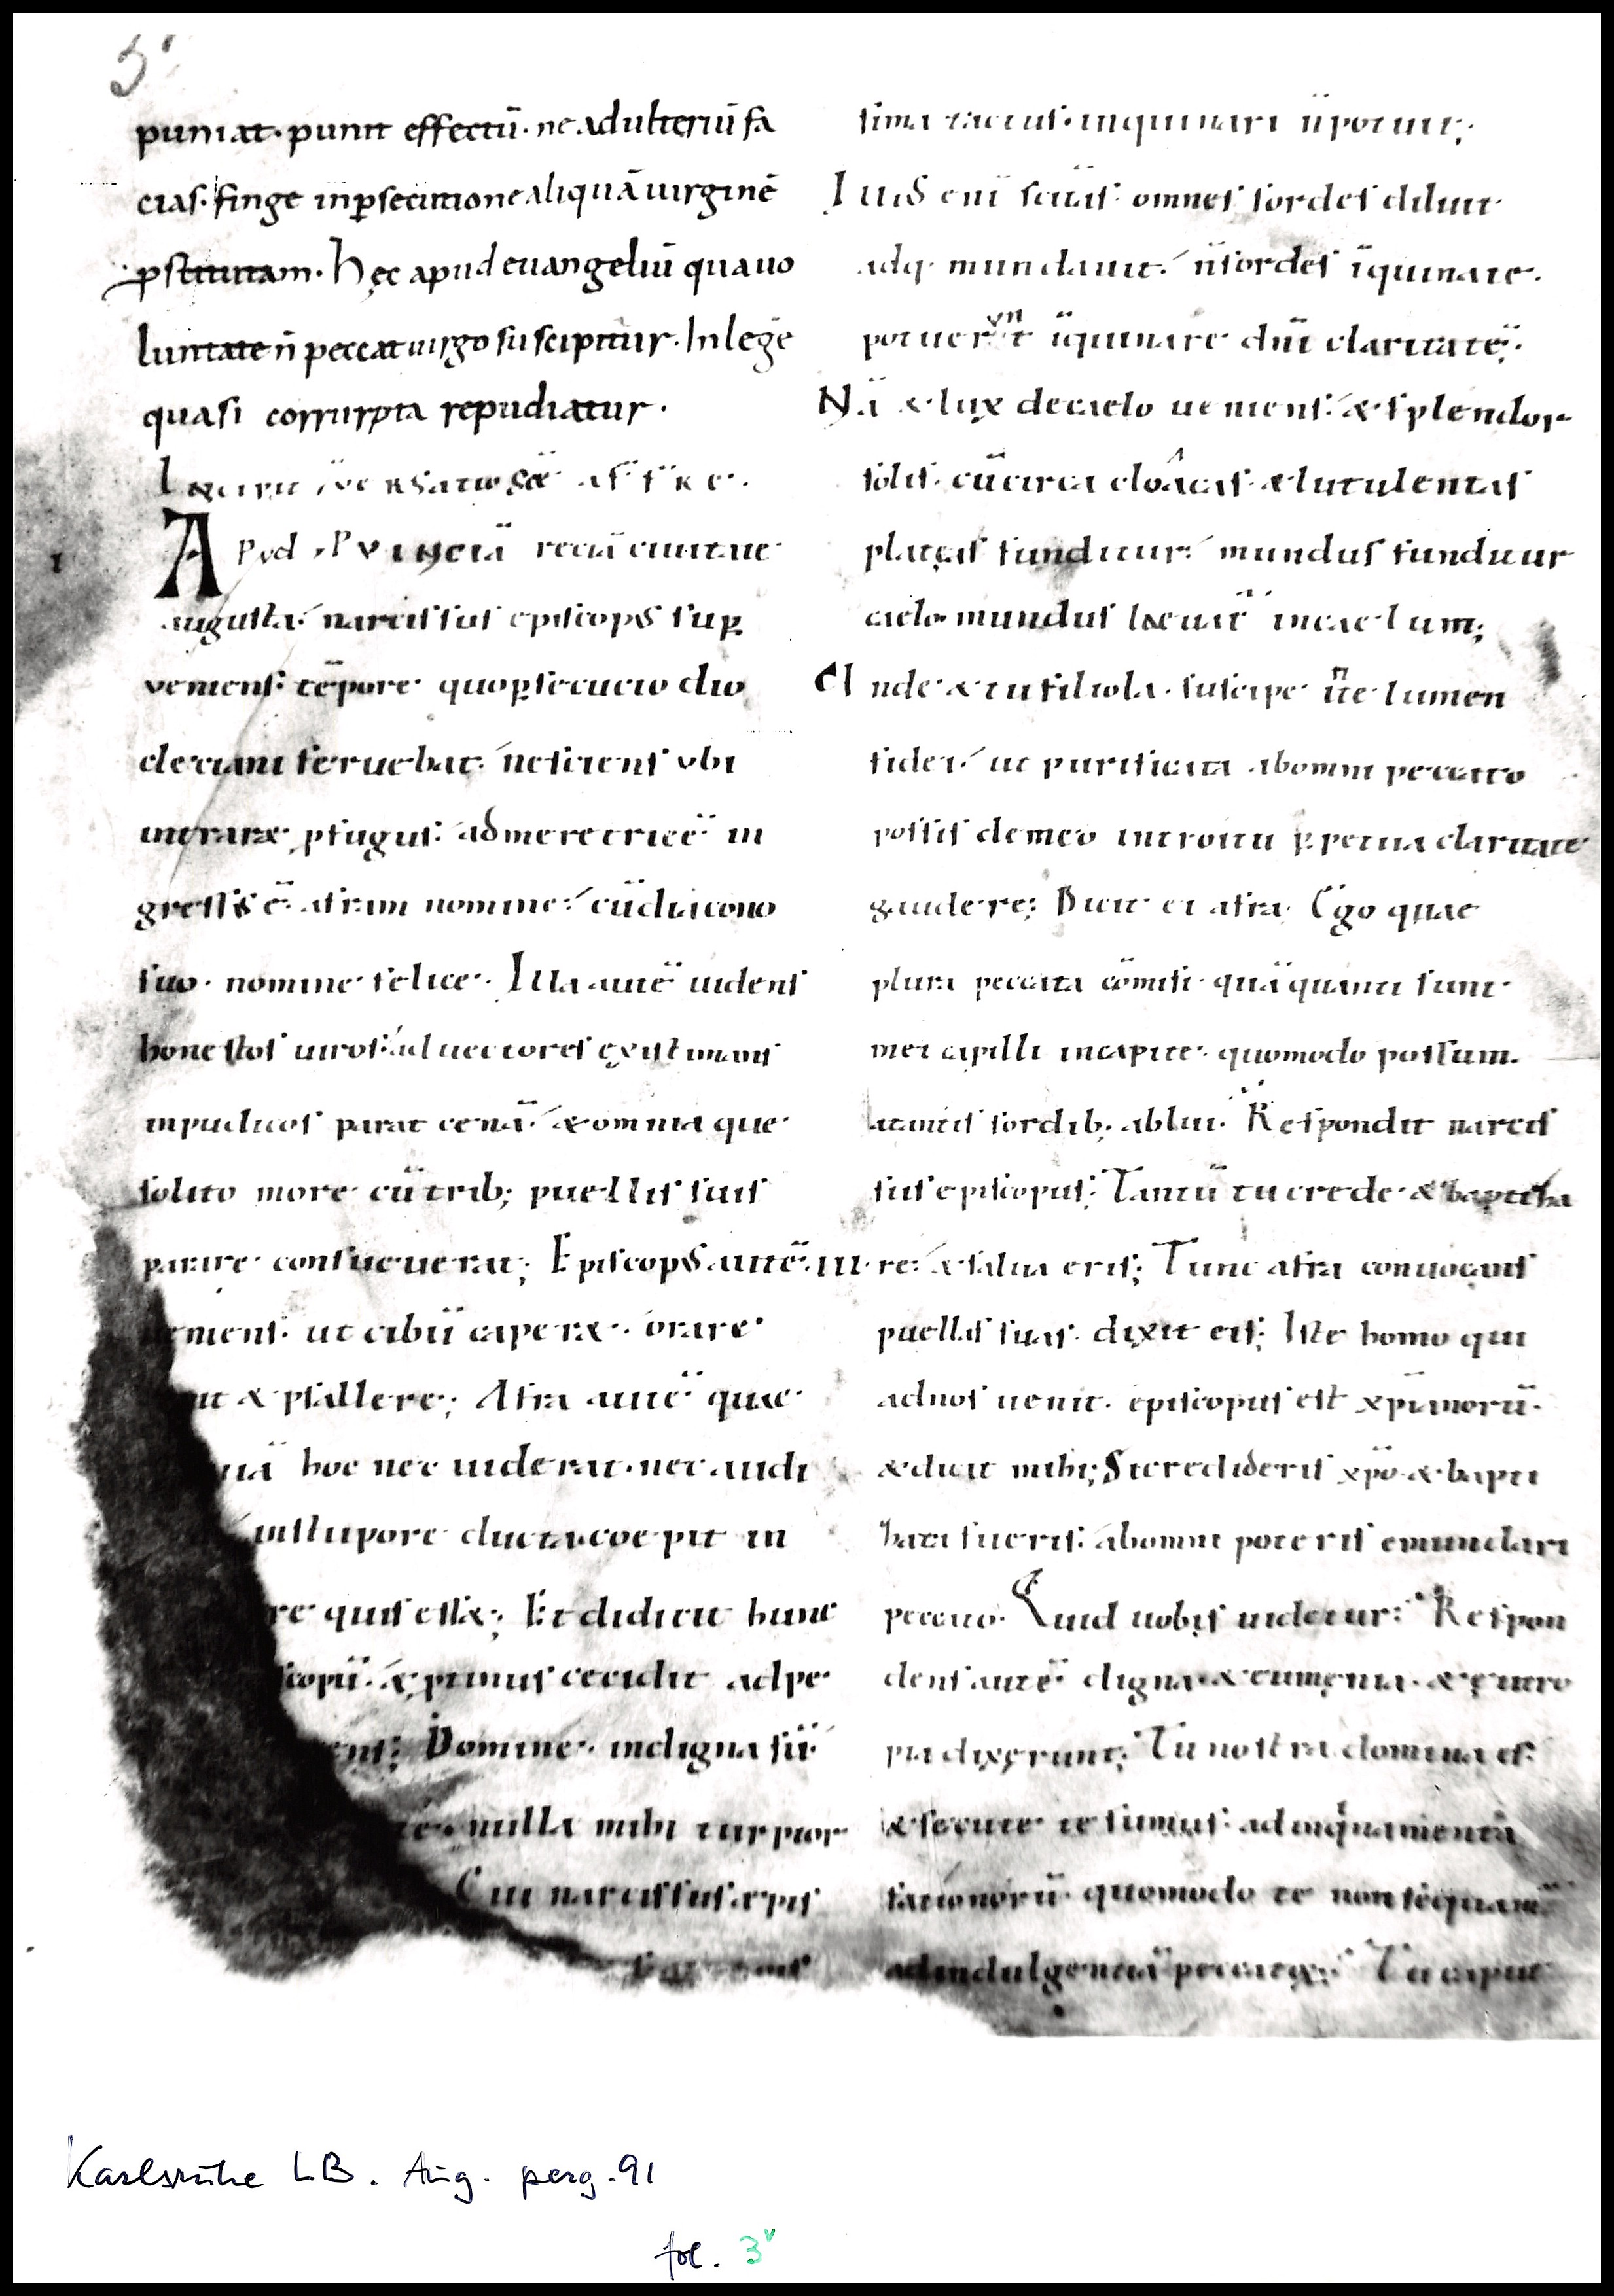 3v
puniat· punit effectū· ne adulteriū fa
cias· finge in ꝑsecutione aliquā uirginē
ꝓstitutam· hęc apud euangeliū qua uo
luntate n̄ peccat uirgo suscipitur· In legē
quasi corrurpta repudiatur·
APVD PVINCIĀ reciā ciuitate
augusta· narcissus episcops suꝑ
veniens· tēpore quo ꝑsecucio dio
cleciani feruebat· nesciens vbi
intraræ ꝓfugus· ad meretricē in
gressus ē· afram nomine· cū diacono
suo· nomine felice· Illa autē uidens
honestos uiros· aduectores existimans
inpudicos parat cenā· & omnia que
solito more cū trib; puellis suis
parare consueuerat; Episcops autē in
ueniens· ut cibū caperæ· orare
& psallere; Afra autē quae
hoc nec uiderat· nec audi
in stupore ducta· coepit in
re quis essæ; Et didicit hunc
scopū· & primus cecidit ad pe
ens; Domine· indigna sū
nulla mihi turpior
Cui narcissus æpis
sima tactus· inquinari n̄ potuit;
IuiS enī scitās omnes sordes diluit
adq· mundauit· n̄ sordes īquinare·
potuervnt īquinare dn̄i claritatē·
Nā & lux de caelo ueniens· & splendor
solis· cū circa cloâcas & lutulentas
plateas funditur· mundus funditur
caelo mundus læuat̄ in caelum;
Unde & tu filiola· suscipe n̄e lumen
fidei· ut purificata ab omni peccato
possis de meo introitu ꝑpetua claritate
gaudere; Dicit ei afra· Ego quae
plura peccata cōmisi· quā quanti sunt
mei capilli in capite· quomodo possum·
a tantis sordib; ablui· Respondit narcis
sus episcopus; Tantū tu crede & baptiza
re· & salua eris; Tunc afra conuocans
puellas suas· dixit eis; Iste homo qui
ad nos uenit· episcopus est xp̄ianorū·
& dicit mihi; Si credideris xp̄o & bapti
zata fueris· ab omni poteris emundari
peccato· Quid uobis uidetur; Respon
dens autē digna· & eumęnia· & eutro
pia dixęrunt; Tu nostra domina es·
& secute te sumus· ad inquinamenta
quomodo te non sequamur
ad indulgentiā peccatę; Tu caput
Karlsruhe LB. Aug. perg. 91
fol. 3v